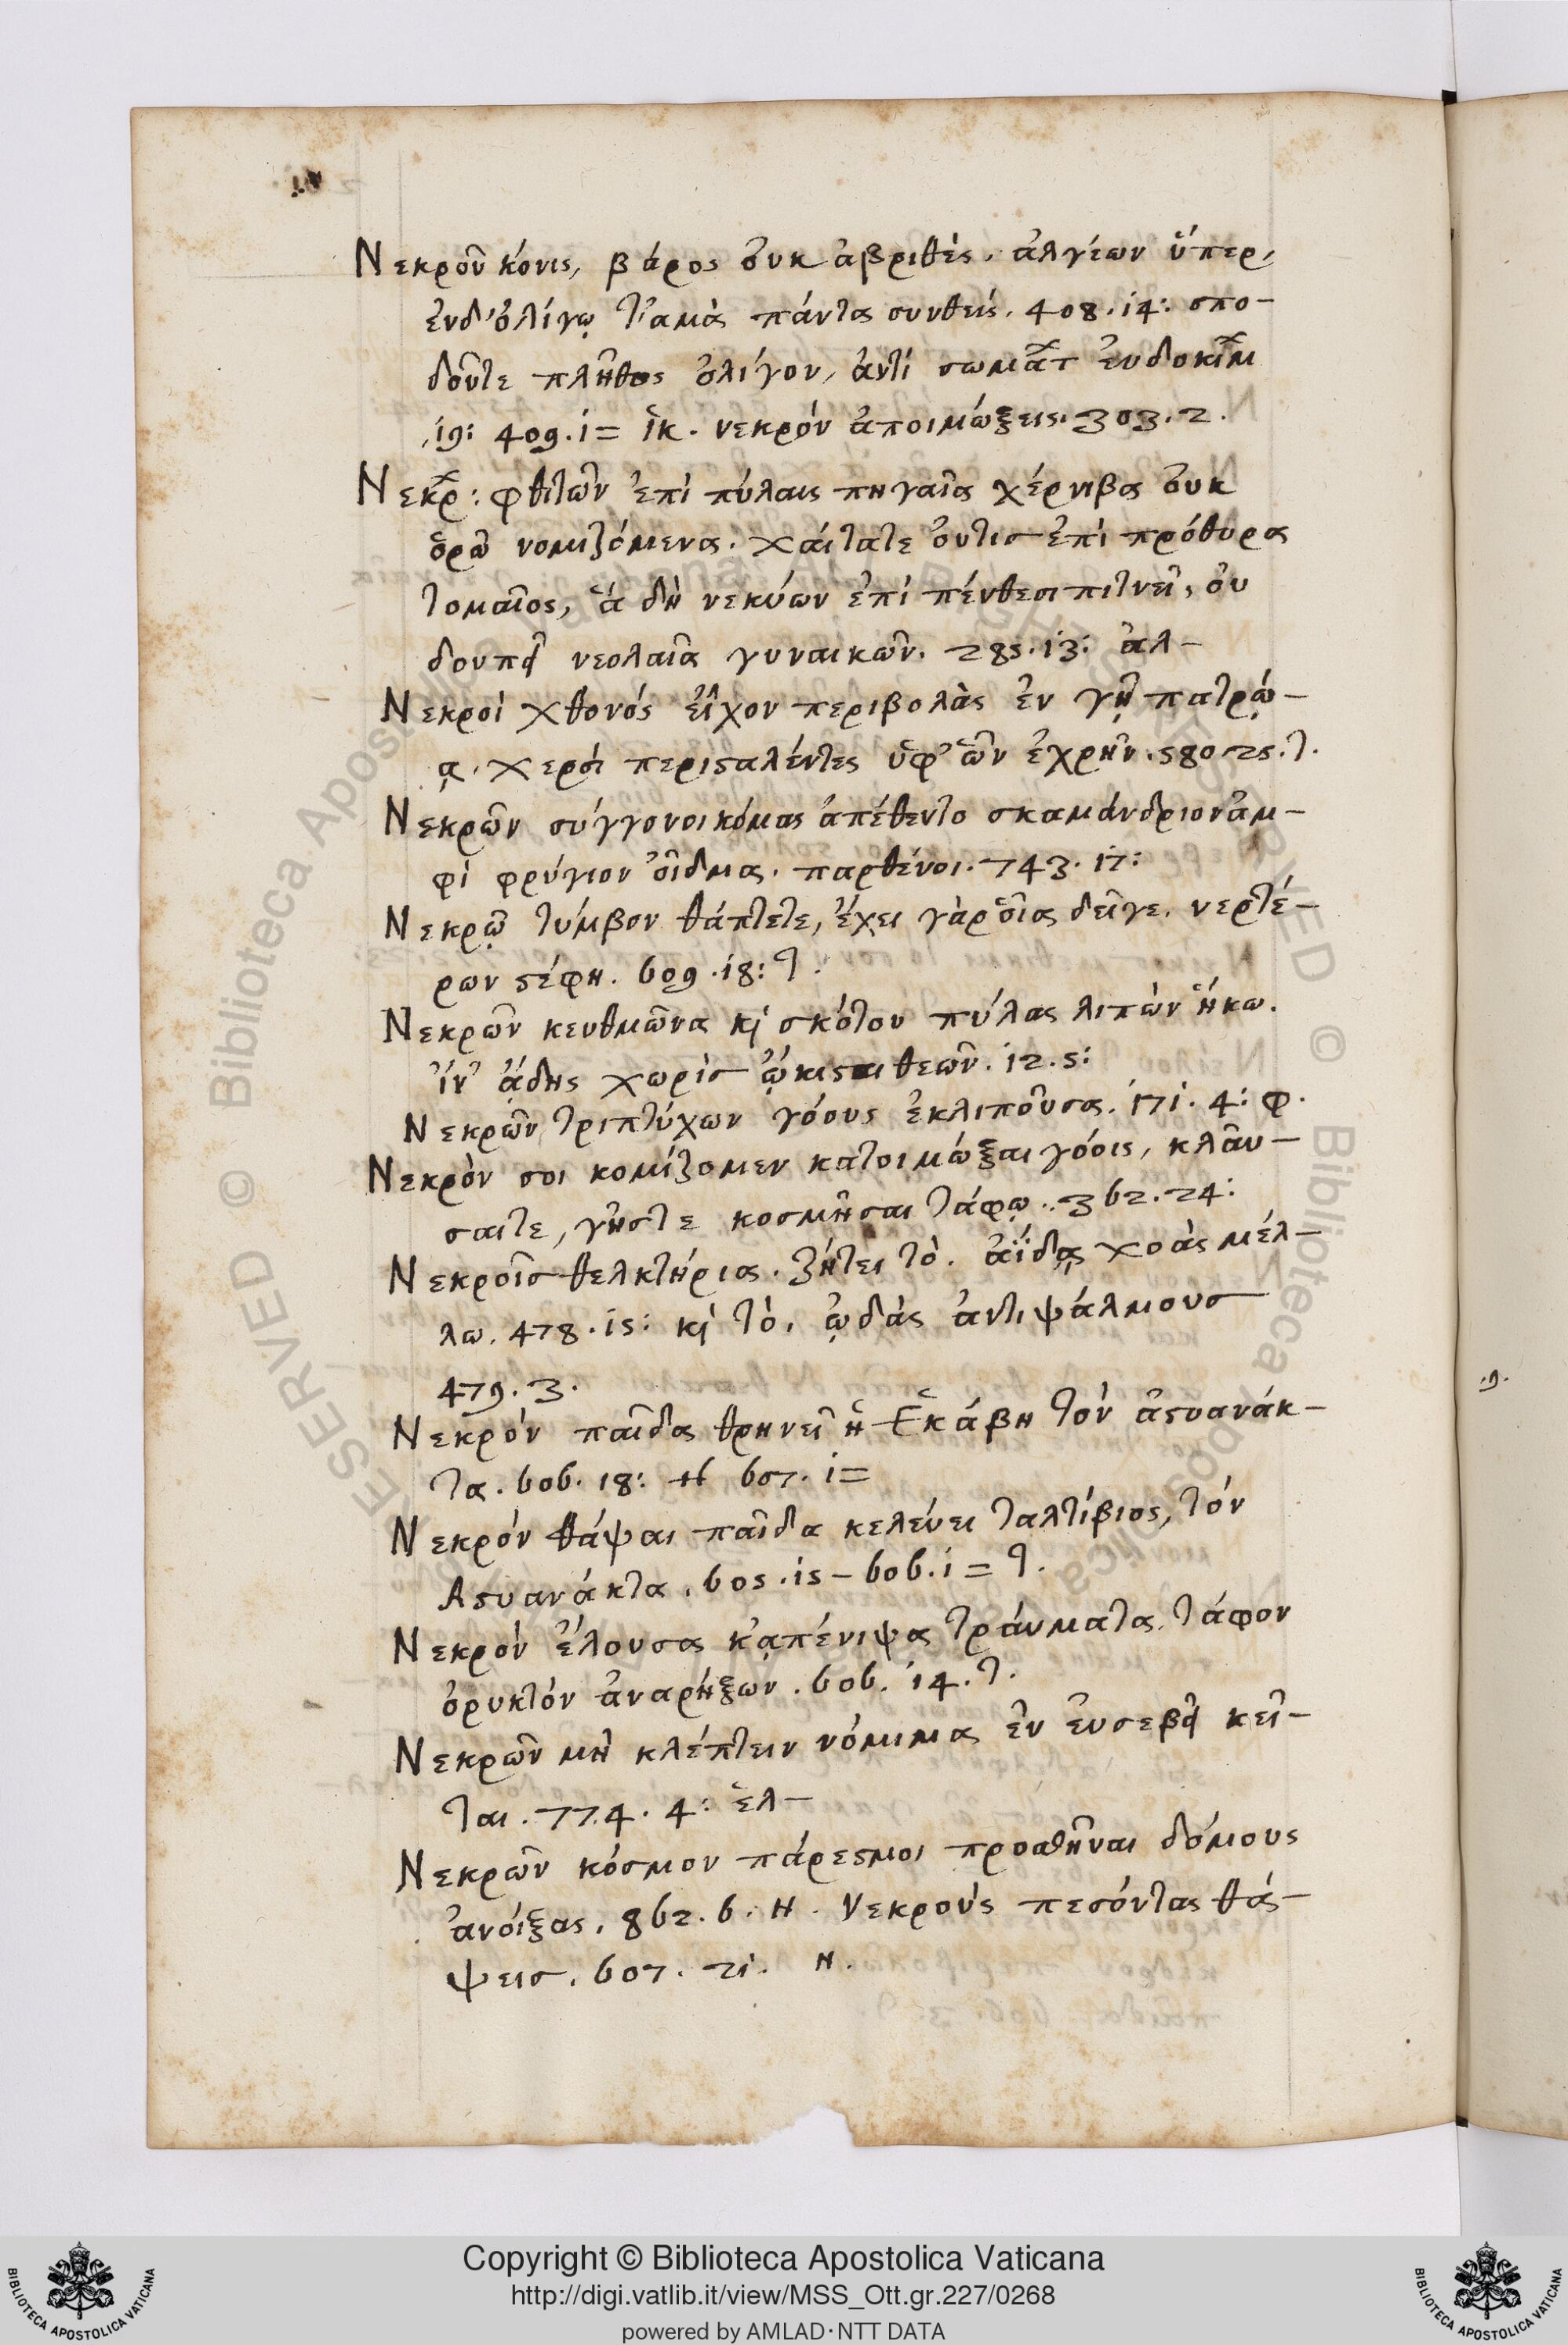 Νεκροῦ κόνις, βάρος οὐκ ἀβριθὲς. ἀλγέων ὕπερ,
ἐνδ' ὀλίγῳ τ' αμὰ πάντα συνθεὶς. 408.14: σπο-
δοῦτε πλῆθος ὀλίγον, ἀντί σωμᾶτ ἐυδοκῖμ
,19: 409.1= ἱκ. νεκρόν ἀποιμώξεις. 303.2.
Νεκρ: φθιτῶν ἐπὶ πύλαις πηγαῖα χέρνιβα ὀυκ
ὁρῶ νομιζόμενα. χάιτατε ὄυτισ ἐπὶ πρόθυρα
τομαῖος, ἁ δὴ νεκύων ἐπὶ πένθεσι πιτνεῖ, ὀυ
δουπεῖ νεολαῖα γυναικῶν. 285.13: ἀλ-
Νεκροὶ χθονός εἶχον περιβολὰς ἐν γῇ πατρῴ-
ᾳ. χερσί περιϛαλέντες ὑφ' ὧν ἐχρῆν. 580-25.τ.
Νεκρῶν σύγγονοι κόμας ἀπέθεντο σκαμάνδριον ἀμ-
φὶ φρύγιον ὄιδμα. παρθένοι. 743.17:
Νεκρῷ τύμβον θάπτετε, ἔχει γὰρ οἷα δεῖγε. νερτέ-
ρων ϛέφη. 609.18: τ.
Νεκρῶν κευθμῶνα κὶ σκότου πύλας λιπὼν ἥκω.
ἵν' ᾅδης χωρὶσ ᾤκιϛαι θεῶν. 12.5:
Νεκρῶν τριπτύχων γόους ἐκλιποῦσα. 171.4: φ.
Νεκρὸν σοι κομίζομεν κατοιμώξαι γόοις, κλαῦ-
σαιτε, γῆστε κοσμῆσαι τάφῳ. 362.24:
Νεκροῖσ θελκτήρια. ζήτει τὸ. ἀΐδᾳ χοὰς μέλ-
λω. 478.15: κὶ τὸ. ᾠδὰς ἀντιψάλμουσ
479.3.
Νεκρόν παῖδα θρηνεῖ ἡ Ἑκάβη τόν ἀϛυανάκ-
τα. 606.18: 607.1=
Νεκρόν θάψαι παῖδα κελεύει ταλτίβιος, τόν
Αϛυανάκτα. 605.15-606.1= τ.
Νεκρόν ἔλουσα κᾀπένιψα τράυματα. τάφον
ὀρυκτόν ἀναρήξων. 606.14.τ.
Νεκρῶν μὴ κλέπτειν νόμιμα ἐν ἐυσεβεῖ κεῖ-
ται. 774.4: ἑλ-
Νεκρῶν κόσμον πάρεϛμοι προαθῆναι δόμους
ἀνόιξας. 862.6. Η. Νεκροὺς πεσόντας θά-
ψεισ. 607.21. Η.
.9.
Copyright © Biblioteca Apostolica Vaticana
http://digi.vatlib.it/view/MSS_Ott.gr.227/0268
powered by AMLAD·NTT DATA
BIBLIOTECA APOSTOLICA VATICANA
BIBLIOTECA APOSTOLICA VATICANA